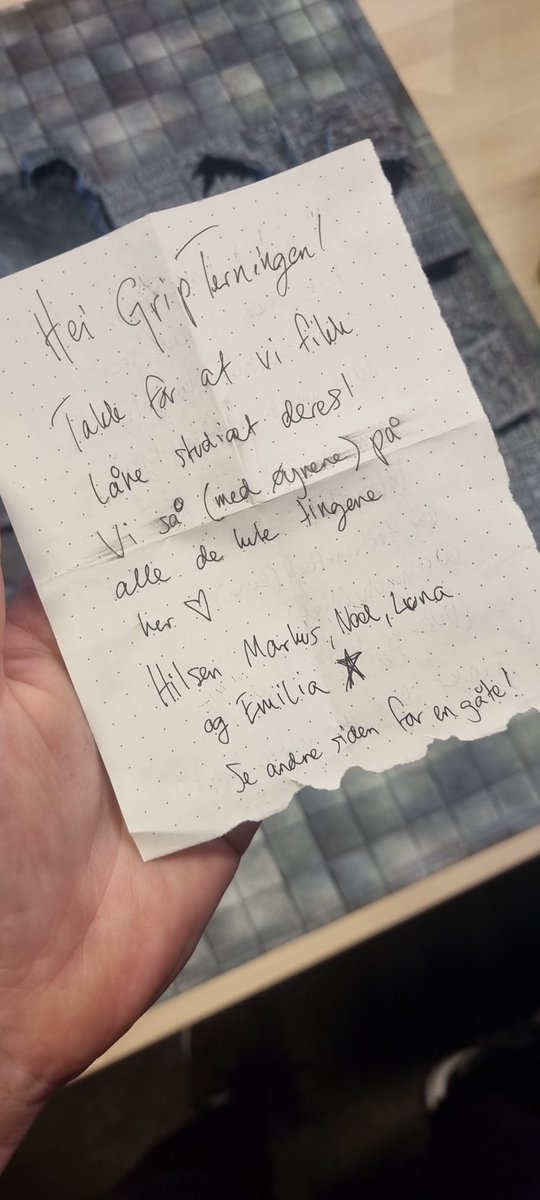 Hei GripTerningen!
Takk for at vi fikk
låne studioet deres!
Vi så (med øynene) på
alle de kule tingene
her ♡
Hilsen Markus, Noel, Luna
og Emilia ☆
Se andre siden for en gåte!